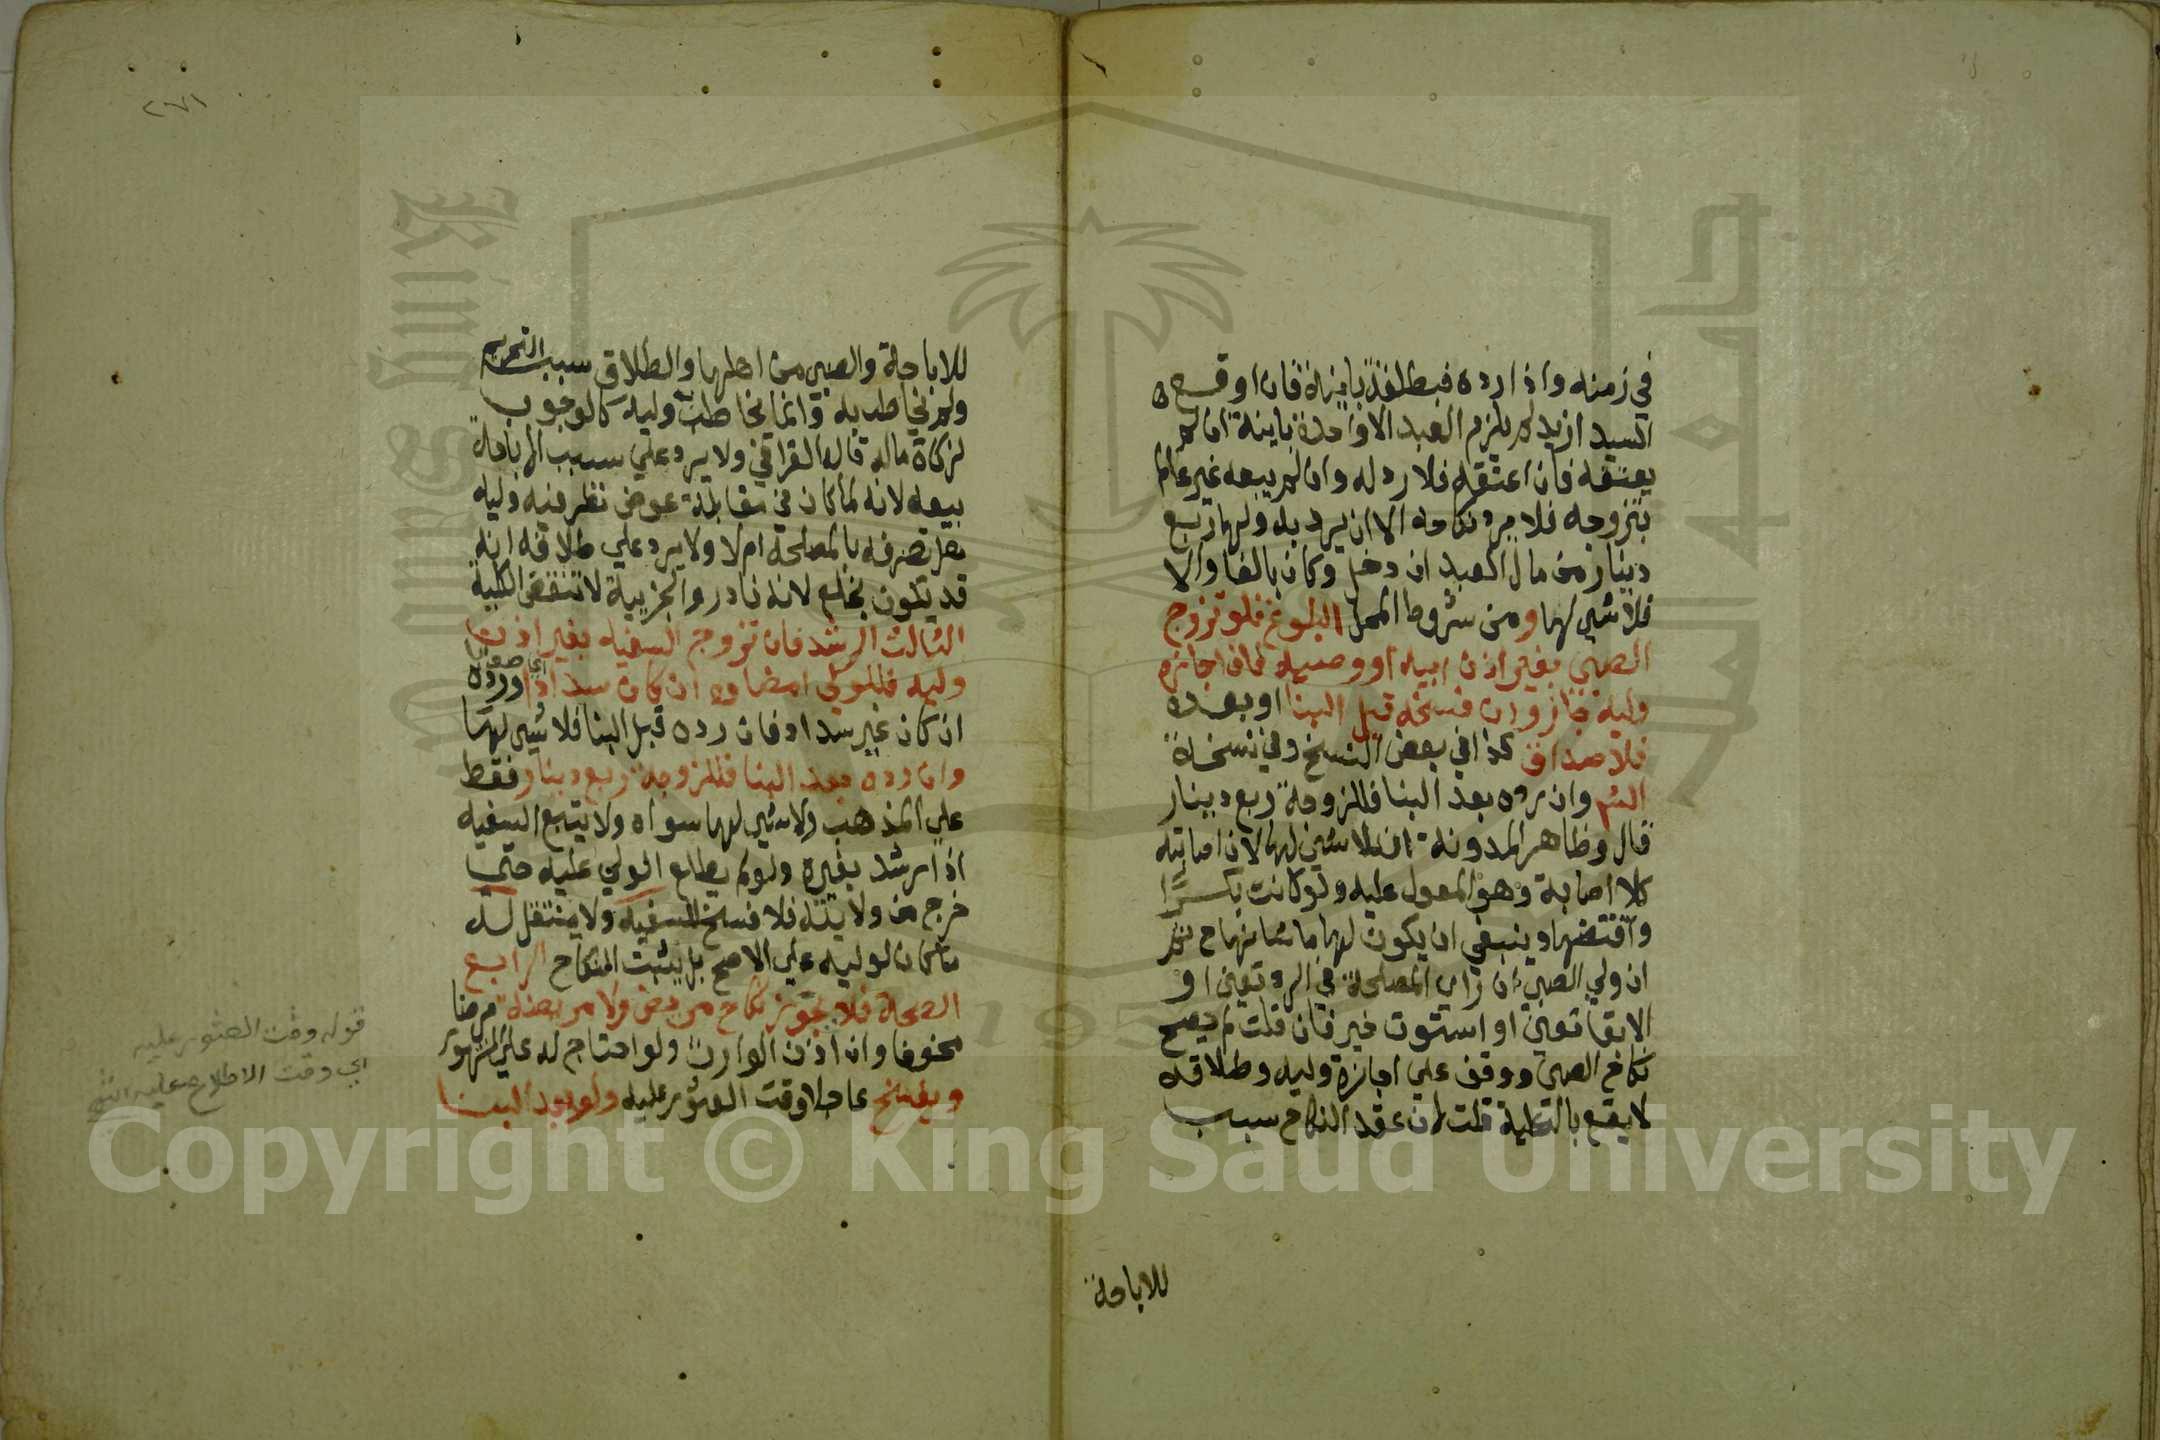 في زمنه واذا رده فبطلقة باينة فان اوقع
السيد ازيد لم يلزم العبد الا واحدة باينة ان لم
يعتقه فان اعتقه فلا رد له وان لم يبعه غير عالم
بتزوجه فلا يرد نكاحه الا ان يرد به ولها ربع
دينار من مال العبد ان دخل وكان بالغا والا
فلا شي لها ومن شروط المحل البلوغ فلو تزوج
الصبي بغير اذن ابيه او وصيه فان اجازه
وليه جاز وان فسخه قبل البنا او بعده
فلا صداق كذا في بعض النسخ وفي نسخة
وان رده بعد البنا فللزوجة ربع دينار
قال وظاهر المدونة ان لا شي لها لان اصابته
كلا اصابة وهو المعول عليه ولو كانت بكرا
وافتضها وينبغي ان يكون لها ما شانها ثم
ان ولي الصبي ان راي المصلحة في الرد تعين او
الابقا تعين او استوت خير فان قلت لم يصح
نكاح الصبي ووقف علي اجازة وليه وطلاقه
لا يقع بالكلية قلت لان عقد النكاح سبب
للاباحة
للاباحة والصبي من اهلها والطلاق سبب التحريم
ولم يخاطب به وانما يخاطب وليه كالوجوب
لزكاة ماله قاله القرافي ولا يرد علي سبب الاباحة
بيعه لانه لما كان في مقابلة عوض نظر فيه وليه
هل تصرفه بالمصلحة ام لا ولا يرد علي طلاقه انه
قد يكون بخلع لانه نادر والجزيية لا تنقض الكلية
الثالث الرشد فان تزوج السفيه بغير اذن
وليه فللولي امضاوه ان كان سدادا ورده
اي صوابا
ان كان غير سداد فان رده قبل البنا فلا شي لها
وان رده بعد البنا فللزوجة ربع دينار فقط
علي المذهب ولا شي لها سواه ولا يتبع السفيه
اذا رشد بغيره ولو لم يطلع الولي عليه حتي
خرج من ولايته فلا فسخ للسفيه ولا ينتقل له
ما كان لوليه علي الاصح بل يثبت النكاح الرابع
الصحة فلا يجوز نكاح مريض ولا مريضة مرضا
مخوفا وان اذن الوارث ولو احتاج له علي المشهور
ويفسخ عاجلا وقت العثور عليه ولو بعد البنا
قوله وقت العثور عليه
اي وقت الاطلاع عليه
Copyright © King Saud University
King Saud University
1957